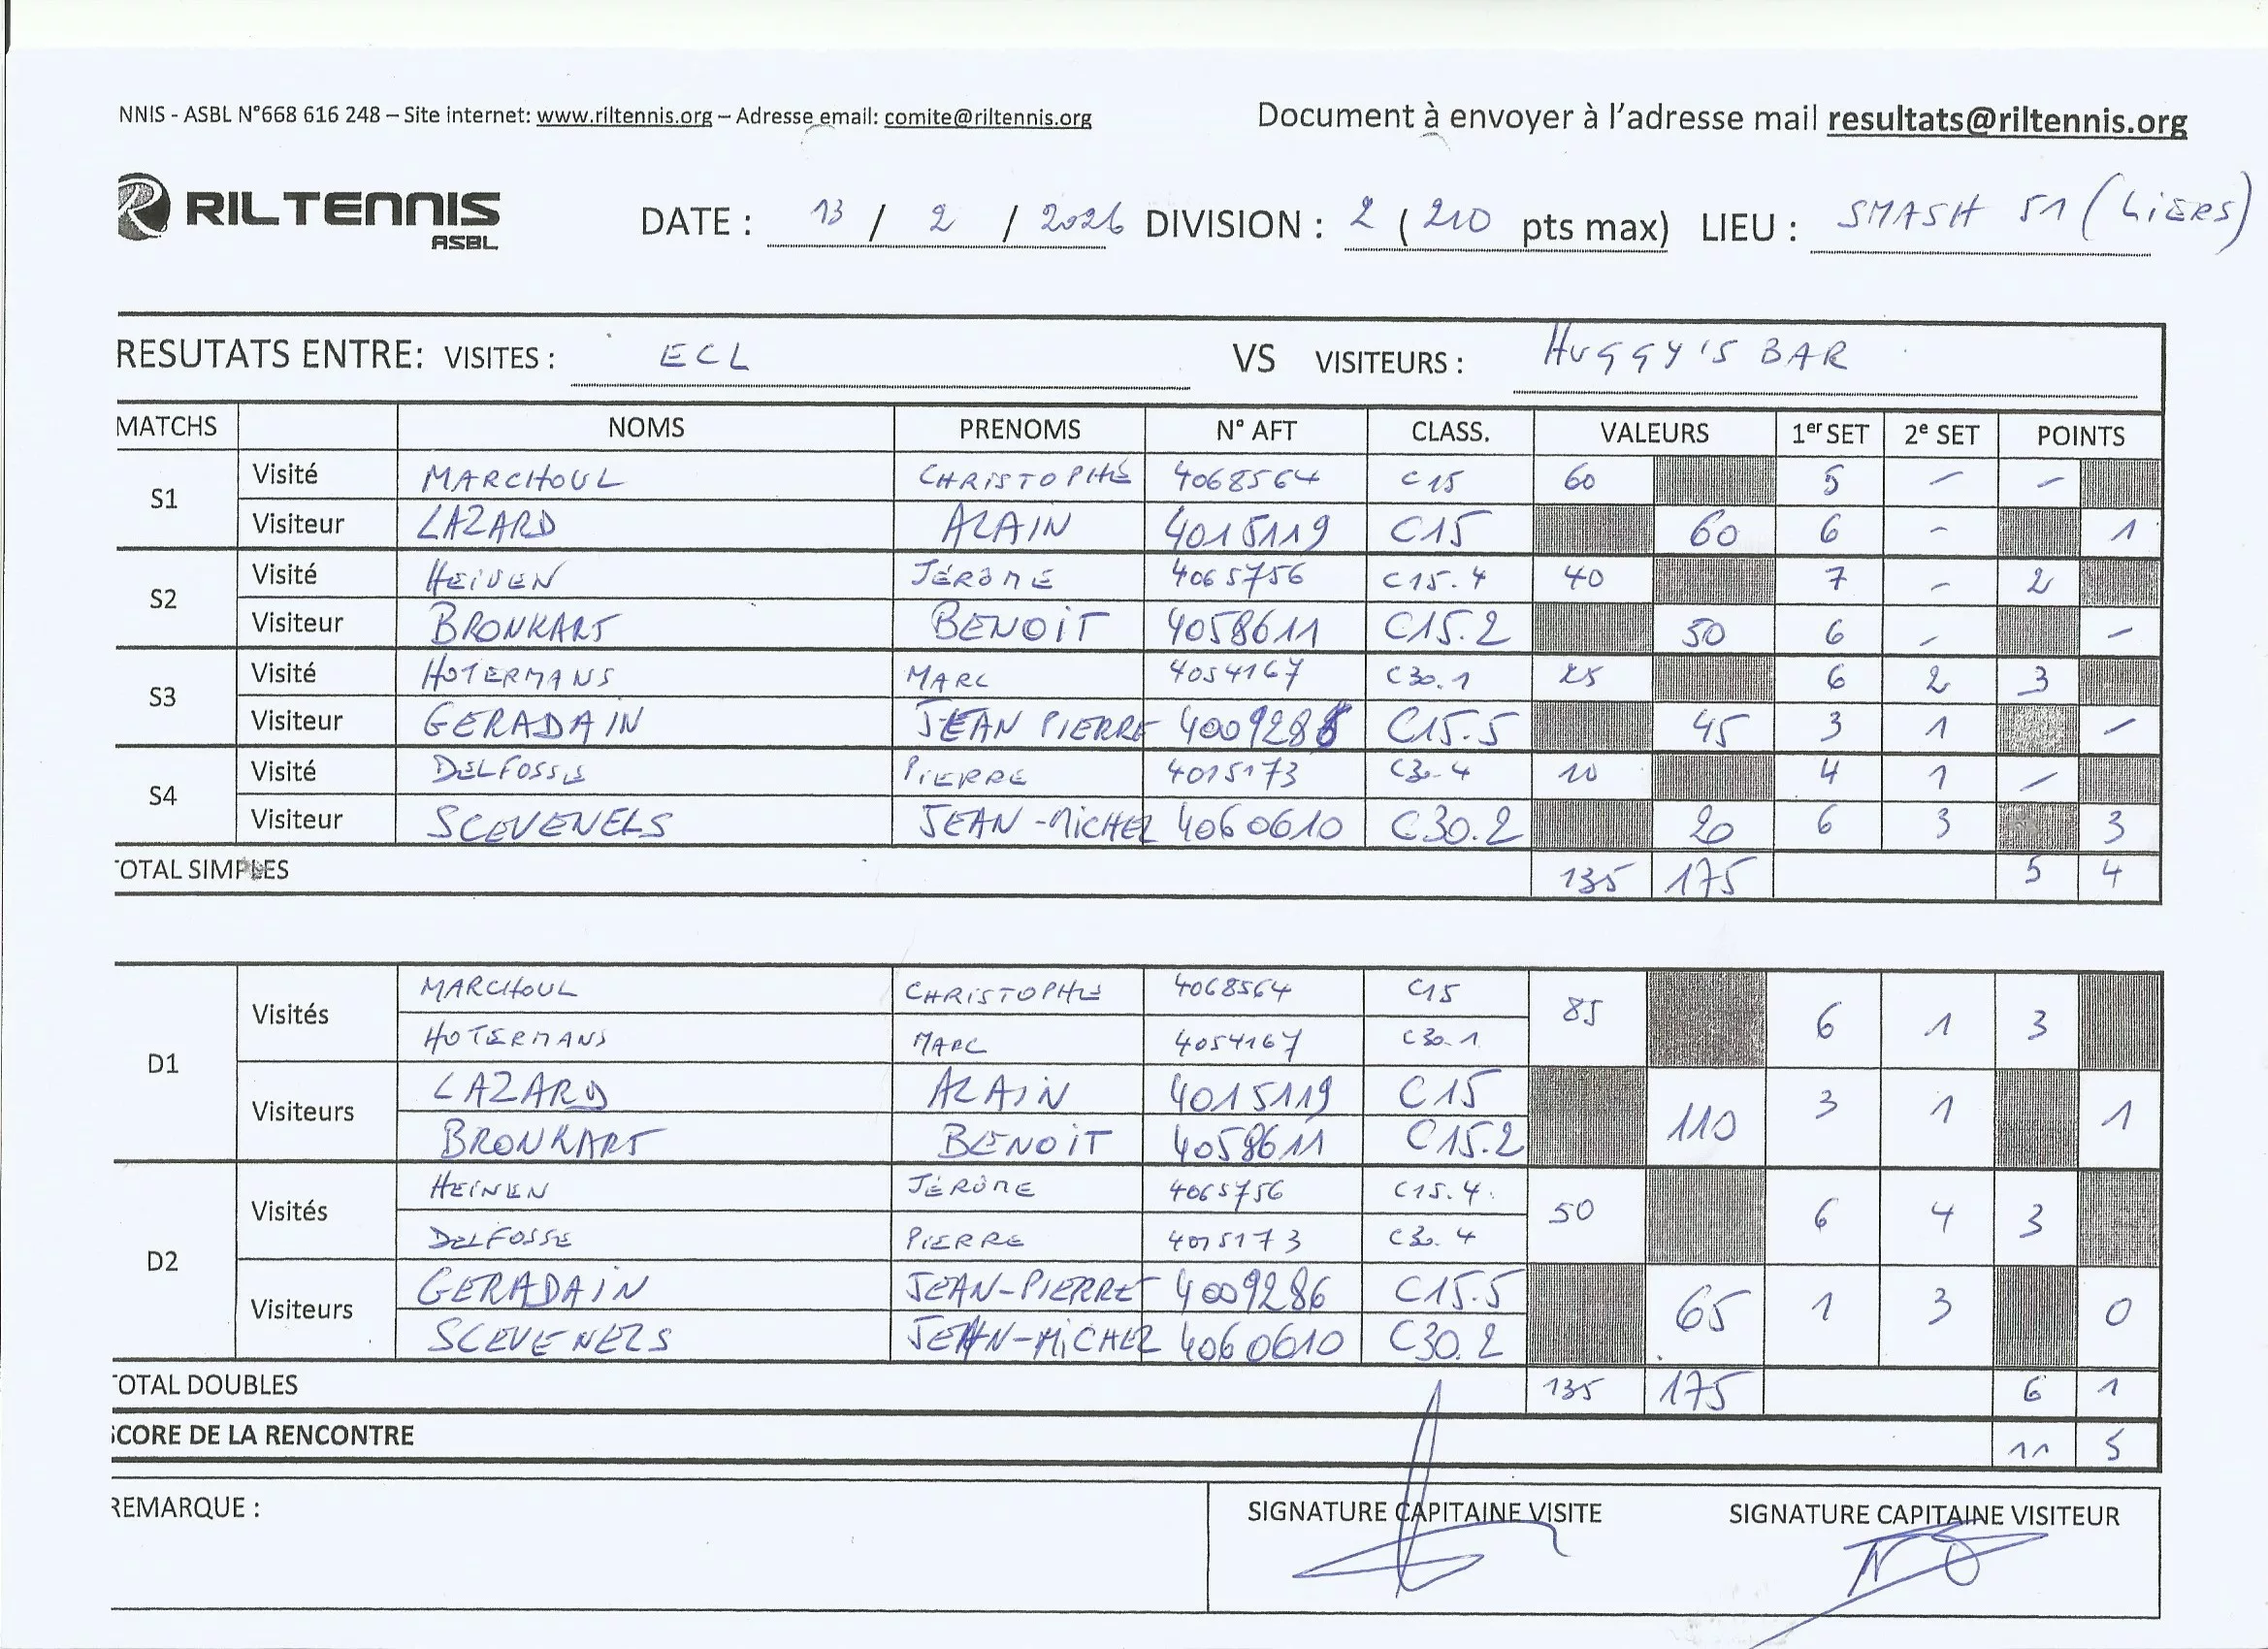 NNIS - ASBL N°668 616 248 – Site internet: www.riltennis.org – Adresse email: comite@riltennis.org Document à envoyer à l'adresse mail resultats@riltennis.org
RILTENNIS ASBL DATE : 13 / 2 / 2026 DIVISION : 2 ( 210 pts max) LIEU : SMASH 51 (LIERS)
RESUTATS ENTRE: VISITES : ECL VS VISITEURS : HUGGY'S BAR
MATCHS NOMS PRENOMS N° AFT CLASS. VALEURS 1er SET 2e SET POINTS
S1 Visité MARCHOUL CHRISTOPHE 4068564 C15 60 5 – –
Visiteur LAZARD ALAIN 4015119 C15 60 6 – 1
S2 Visité HEINEN JÉRÔME 4065756 C15.4 40 7 – 2
Visiteur BRONKART BENOIT 4058611 C15.2 50 6 – –
S3 Visité HOTERMANS MARC 4054167 C30.1 25 6 2 3
Visiteur GERADAIN JEAN PIERRE 4009286 C15.5 45 3 1 –
S4 Visité DELFOSSE PIERRE 4015173 C30.4 10 4 1 –
Visiteur SCEVENELS JEAN-MICHEL 4060610 C30.2 20 6 3 3
OTAL SIMPLES 135 175 5 4
D1 Visités MARCHOUL CHRISTOPHE 4068564 C15 85 6 1 3
HOTERMANS MARC 4054167 C30.1
Visiteurs LAZARD ALAIN 4015119 C15 110 3 1 1
BRONKART BENOIT 4058611 C15.2
D2 Visités HEINEN JÉRÔME 4065756 C15.4. 50 6 4 3
DELFOSSE PIERRE 4015173 C30.4
Visiteurs GERADAIN JEAN-PIERRE 4009286 C15.5 65 1 3 0
SCEVENELS JEAN-MICHEL 4060610 C30.2
OTAL DOUBLES 135 175 6 1
SCORE DE LA RENCONTRE 11 5
REMARQUE : SIGNATURE CAPITAINE VISITE SIGNATURE CAPITAINE VISITEUR